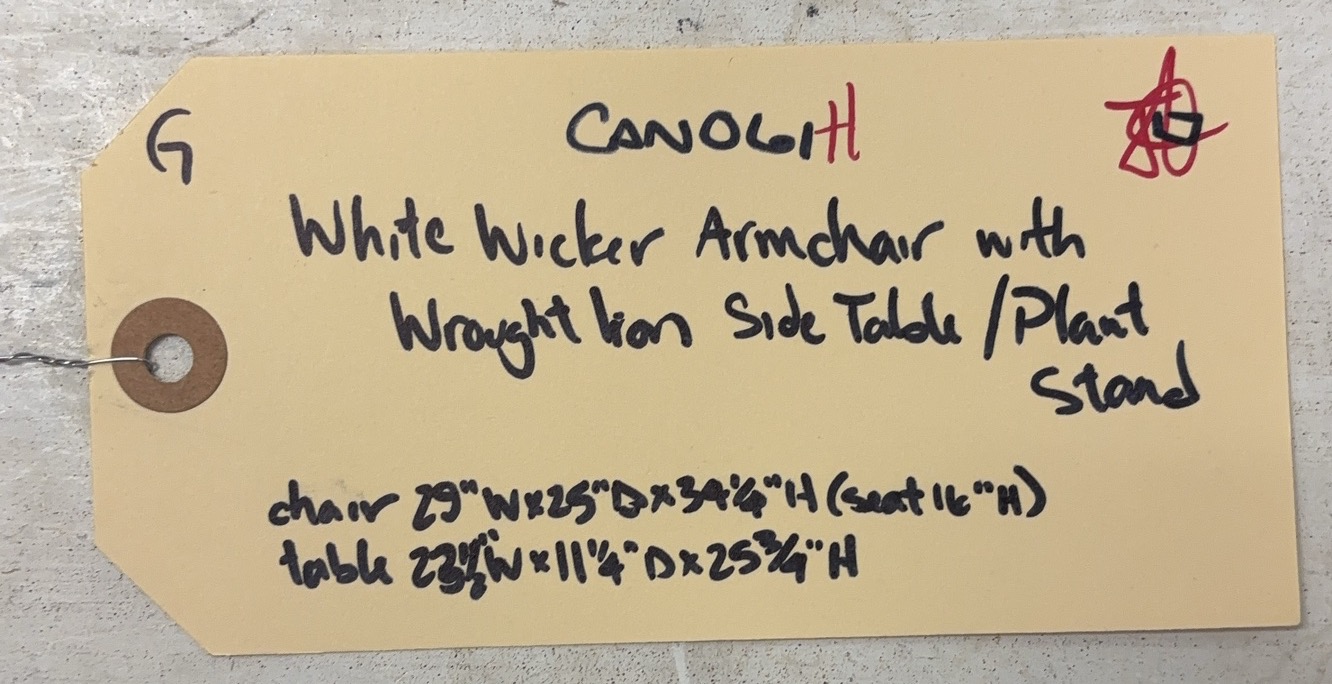 G
CAN061H
White Wicker Armchair with
Wrought Iron Side Table / Plant
Stand
chair 29"W x 25"D x 34 1/4"H (seat 16"H)
table 23 1/2"W x 11 1/4"D x 25 3/4"H